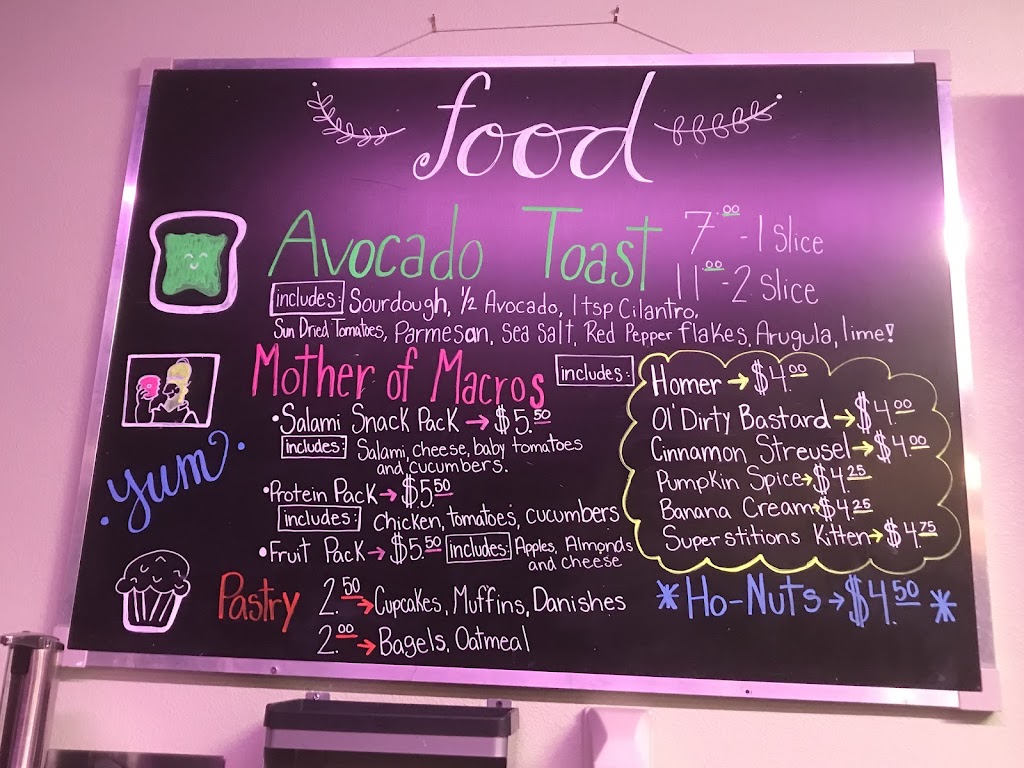 food
Avocado Toast
7.00 - 1 Slice
11.00 - 2 Slice
includes: Sourdough, 1/2 Avocado, 1 tsp Cilantro,
Sun Dried Tomatoes, Parmesan, Sea Salt, Red Pepper flakes, Arugula, lime!
Mother of Macros
• Salami Snack Pack → $5.50
includes: Salami, cheese, baby tomatoes
and cucumbers.
• Protein Pack → $5.50
includes: Chicken, tomatoes, cucumbers
• Fruit Pack → $5.50 includes: Apples, Almonds
and cheese
includes:
Homer → $4.00
Ol' Dirty Bastard → $4.00
Cinnamon Streusel → $4.00
Pumpkin Spice → $4.25
Banana Cream → $4.25
Superstitions Kitten → $4.75
* Ho-Nuts → $4.50 *
yum
Pastry 2.50 → Cupcakes, Muffins, Danishes
2.00 → Bagels, Oatmeal